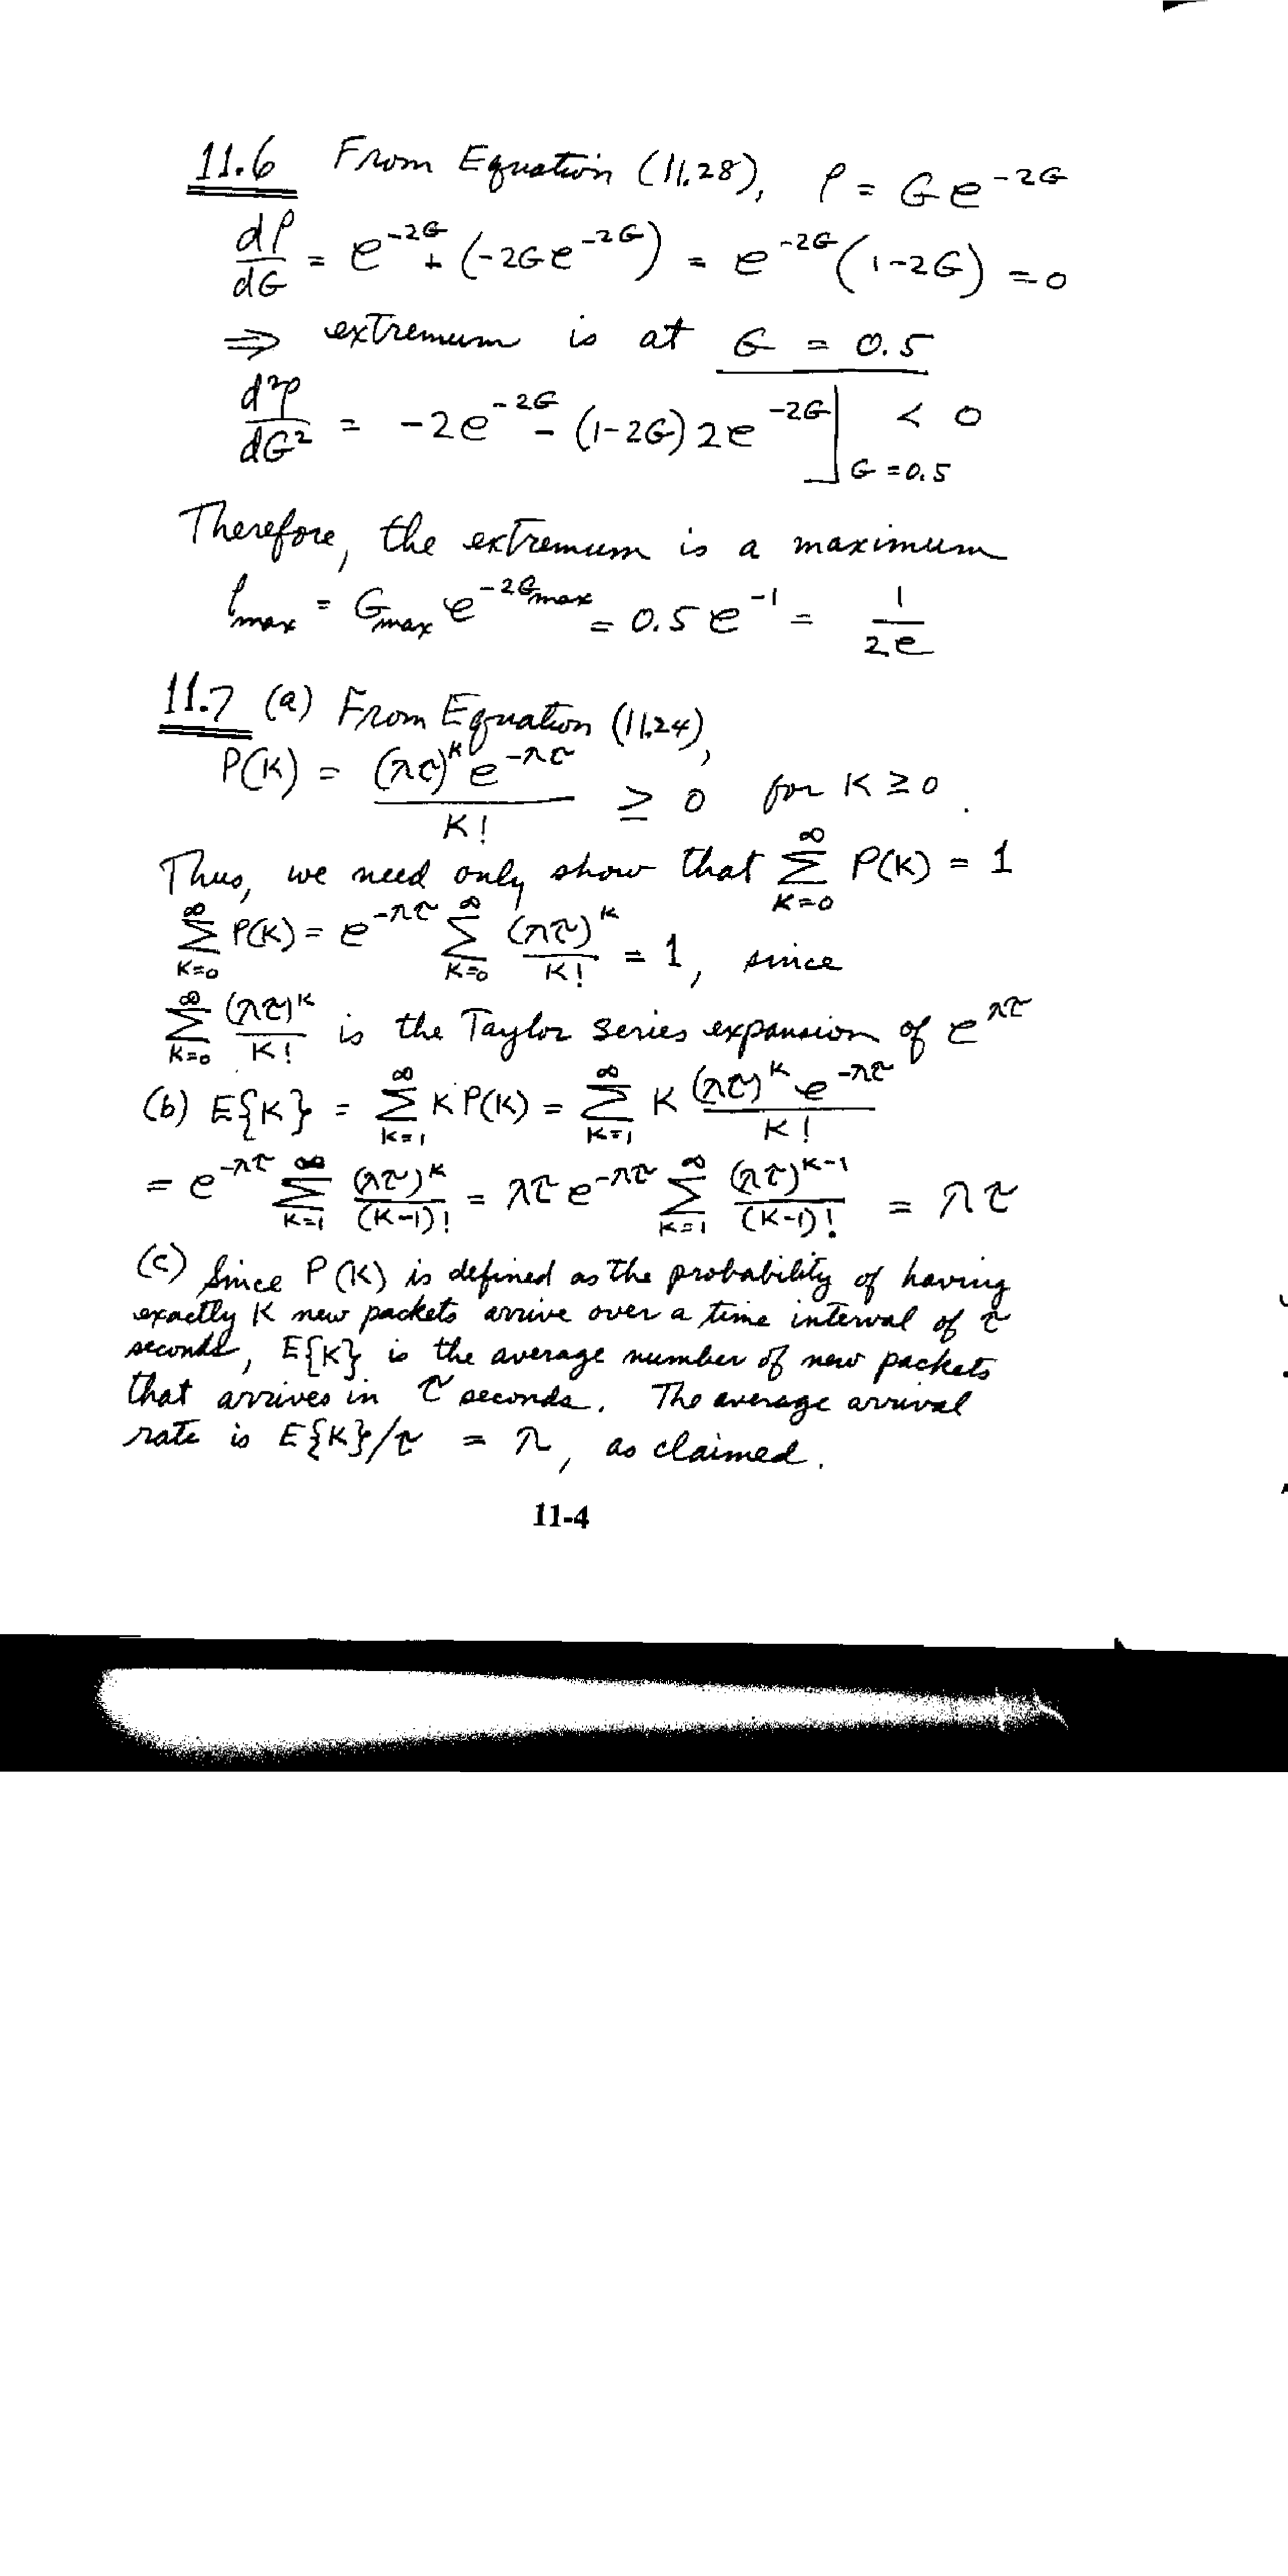 11.6 From Equation (11.28), ρ = Ge^{-2G}
dρ/dG = e^{-2G} + (-2Ge^{-2G}) = e^{-2G}(1-2G) = 0
⇒ extremum is at G = 0.5
d²ρ/dG² = -2e^{-2G} - (1-2G)2e^{-2G}]_{G=0.5} < 0
Therefore, the extremum is a maximum
ρ_max = G_max e^{-2G_max} = 0.5e^{-1} = 1/2e
11.7 (a) From Equation (11.24),
P(K) = (λτ)^K e^{-λτ}/K! ≥ 0 for K ≥ 0.
Thus, we need only show that ∑_{K=0}^{∞} P(K) = 1
∑_{K=0}^{∞} P(K) = e^{-λτ} ∑_{K=0}^{∞} (λτ)^K/K! = 1, since
∑_{K=0}^{∞} (λτ)^K/K! is the Taylor series expansion of e^{λτ}
(b) E{K} = ∑_{K=1}^{∞} K P(K) = ∑_{K=1}^{∞} K (λτ)^K e^{-λτ}/K!
= e^{-λτ} ∑_{K=1}^{∞} (λτ)^K/(K-1)! = λτ e^{-λτ} ∑_{K=1}^{∞} (λτ)^{K-1}/(K-1)! = λτ
(c) Since P(K) is defined as the probability of having
exactly K new packets arrive over a time interval of τ
seconds, E{K} is the average number of new packets
that arrives in τ seconds. The average arrival
rate is E{K}/τ = λ, as claimed.
11-4